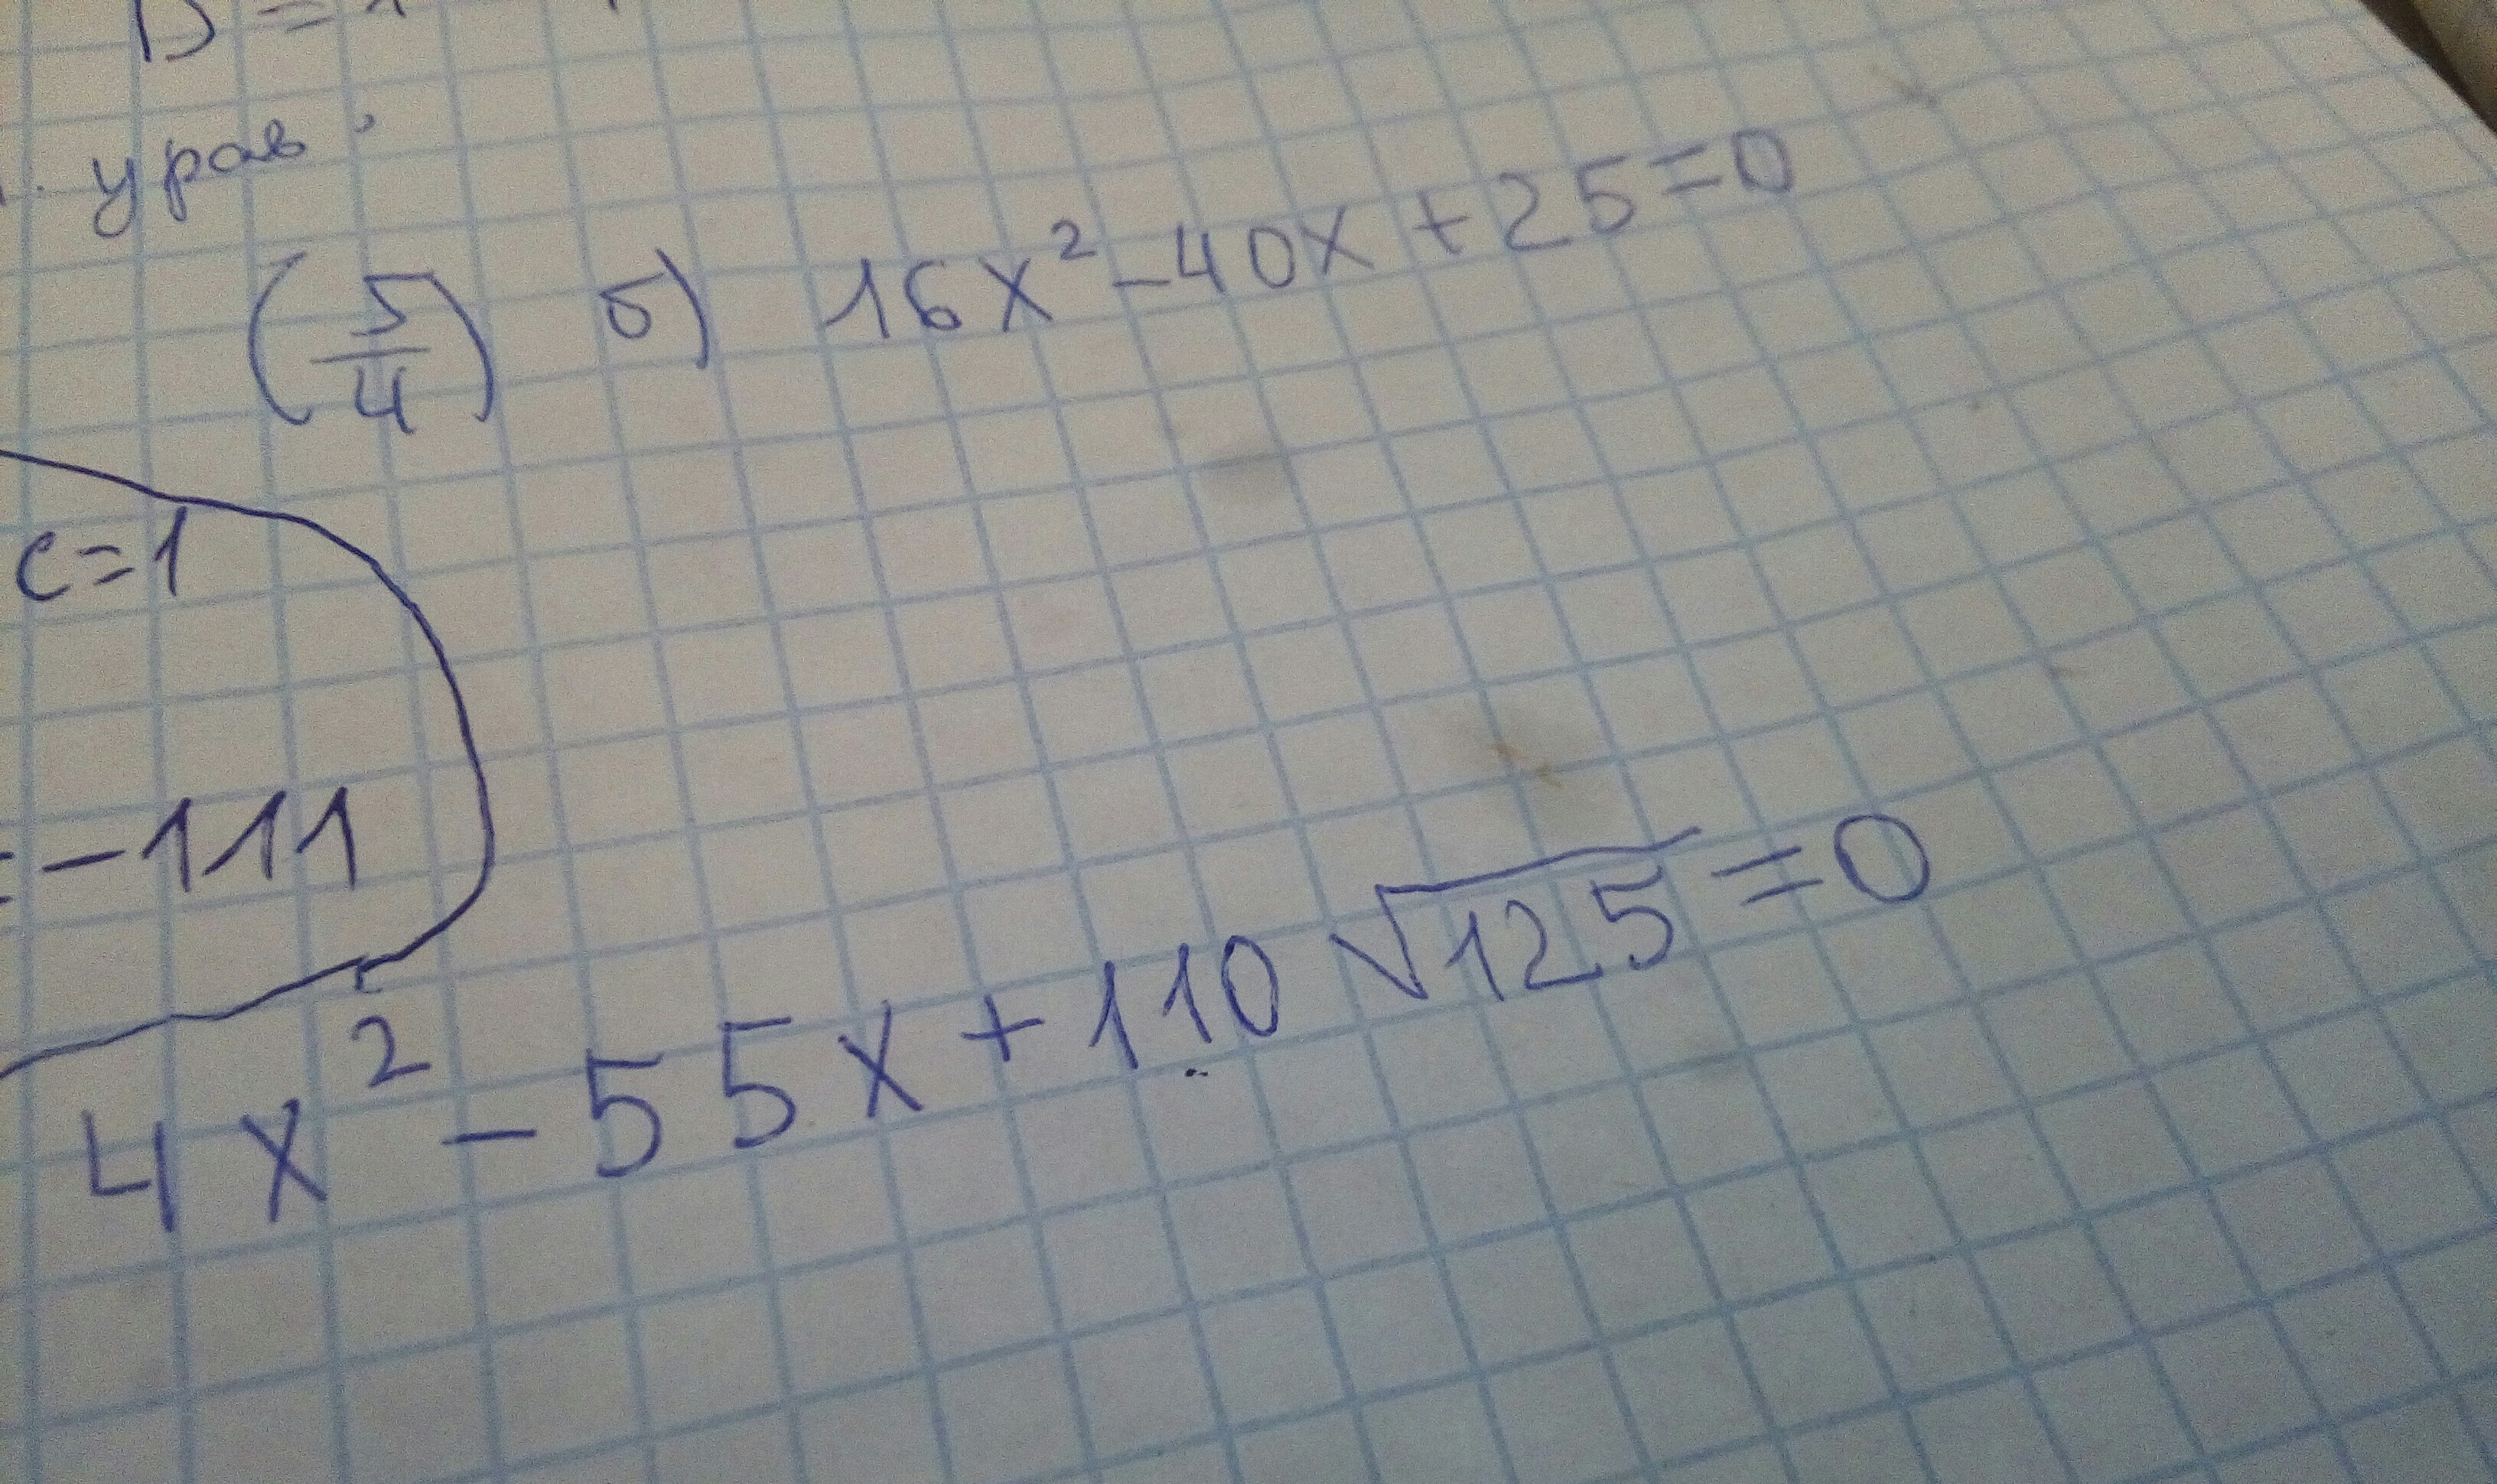 D =
урав.
(5/4) б) 16x² - 40x + 25 = 0
c = 1
= -111
4x² - 55x + 110 √125 = 0